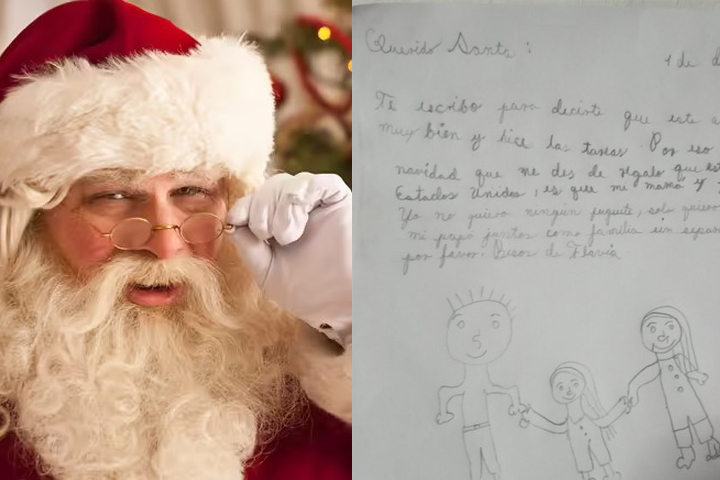 Querido Santa:
1 de
Te escribo para decirte que este
muy bien y hice las tareas. Por eso
navidad que me des de regalo que
Estados Unidos, es que me mamá y
Yo no quiero ningún juguete, solo quiero
mi papá juntos como familia sin
por favor. Besos de Flavia